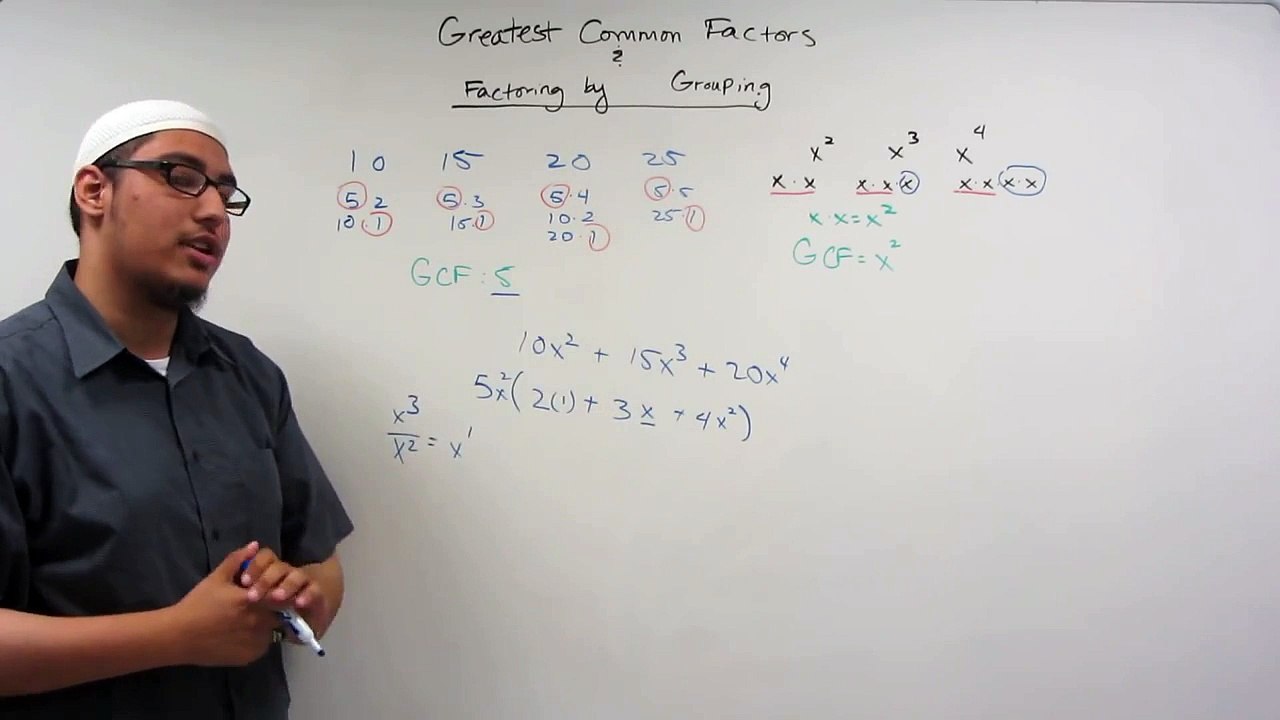 Greatest Common Factors
&
Factoring by Grouping
10 15 20 25
5 2 5·3 5·4 5·5
10·1 15·1 10·2 25·1
20·1
GCF: 5
x² x³ x⁴
x·x x·x·x x·x x·x
x·x=x²
GCF=x²
10x² + 15x³ + 20x⁴
5x²(2(1)+ 3x + 4x²)
x³
x² = x¹